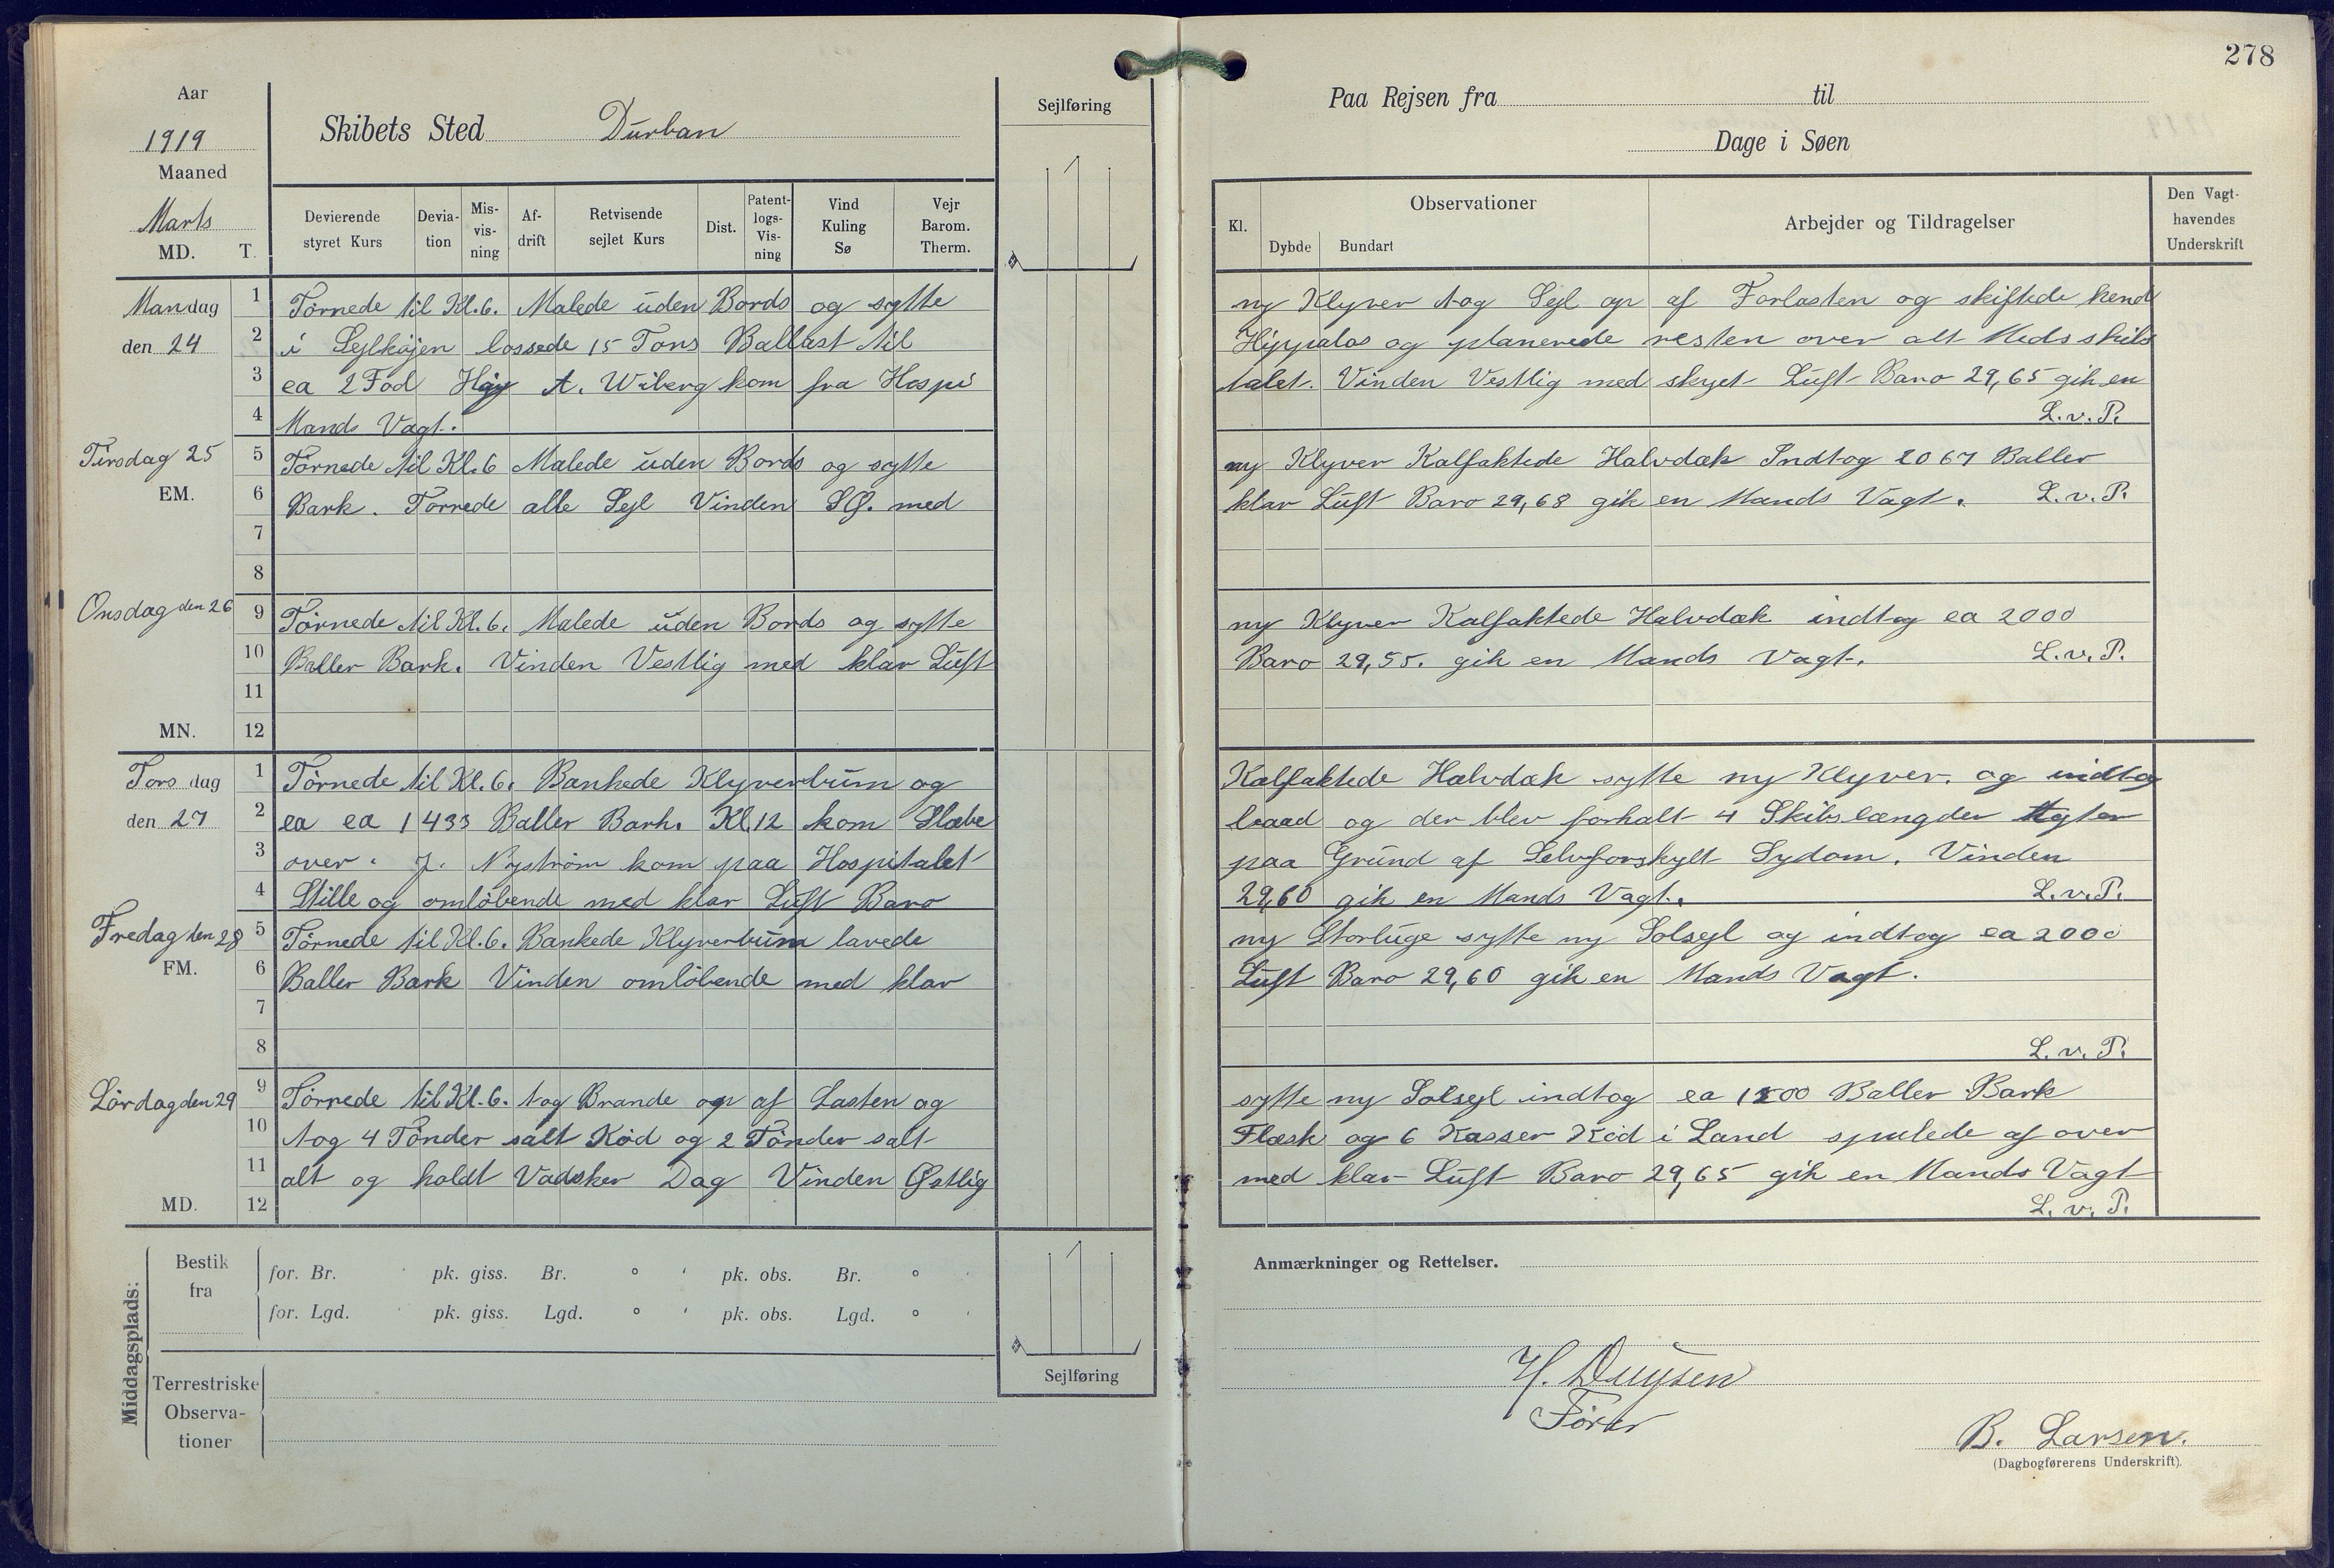 278
Aar
1919
Maaned
Marts
MD. T.
Skibets Sted Durban
Sejlføring
Paa Rejsen fra til
Dage i Søen
Devierende styret Kurs
Devia-tion
Mis-vis-ning
Af-drift
Retvisende sejlet Kurs
Dist.
Patent-logs-Vis-ning
Vind Kuling Sø
Vejr Barom. Therm.
Kl.
Observationer
Dybde Bundart
Arbejder og Tildragelser
Den Vagt-havendes Underskrift
Mandag
den 24
1 Törnede til Kl. 6. Malede uden Bords og sytte ny Klyver tog Sejl op af Forlasten og skiftede hend
2 i Sejlköjen lossede 15 Tons Ballast til Hippalos og planerede resten over alt Medsskibs
3 ca 2 Fod Höj A. Wiberg kom fra Hospi talet. Vinden Vestlig med skyet Luft Baro 29,65 gik en
4 Mands Vagt. L.v.P.
Tirsdag 25
EM.
5 Törnede til Kl. 6 Malede uden Bords og sytte ny Klyver Kalfaktede Halvdæk Indtog 2067 Baller
6 Bark. Törrede alle Sejl Vinden SØ. med klar Luft Baro 29,68 gik en Mands Vagt. L.v.P.
7
8
Onsdag den 26
9 Törnede til Kl. 6. Malede uden Bords og sytte ny Klyver Kalfaktede Halvdæk indtog ca 2000
10 Baller Bark. Vinden Vestlig med klar Luft Baro 29,55. gik en Mands Vagt. L.v.P.
11
MN. 12
Torsdag
den 27
1 Törnede til Kl. 6. Bankede Klyverbum og Kalfaktede Halvdæk sytte ny Klyver. og indtog
2 ca ca 1433 Baller Bark. Kl. 12 kom Slæbe baad og der blev forhalt 4 Skibslængder Agter
3 over. J. Nyström kom paa Hospitalet paa Grund af Selvforskylt Sydom. Vinden
4 Stille og omlöbende med klar Luft Baro 29,60 gik en Mands Vagt. L.v.P.
Fredag den 28
FM.
5 Törnede til Kl. 6. Bankede Klyverbum lavede ny Storluge sytte ny Solsejl og indtog ca 2000
6 Baller Bark Vinden omlöbende med klar Luft Baro 29,60 gik en Mands Vagt.
7
8 L.v.P.
Lördag den 29
9 Törnede til Kl. 6. tog Brænde op af Lasten og sytte ny Solsejl indtog ca 1500 Baller Bark
10 tog 4 Tönder salt Köd og 2 Tönder salt Flæsk og 6 Kasser Köd i Land spulede af over
11 alt og holdt Vadsker Dag Vinden Østlig med klar Luft Baro 29,65 gik en Mands Vagt
MD. 12 L.v.P.
Middagsplads:
Bestik fra
for. Br. ' pk. giss. Br. ° ' pk. obs. Br. ° '
for. Lgd. ' pk. giss. Lgd. ° ' pk. obs. Lgd. ° '
Terrestriske Observa-tioner
Sejlføring
Anmærkninger og Rettelser.
H. Duysen
Förer
B. Larsen.
(Dagbogførerens Underskrift).